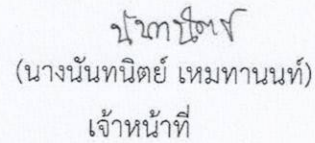 (นางนันทนิตย์ เหมทานนท์)
เจ้าหน้าที่